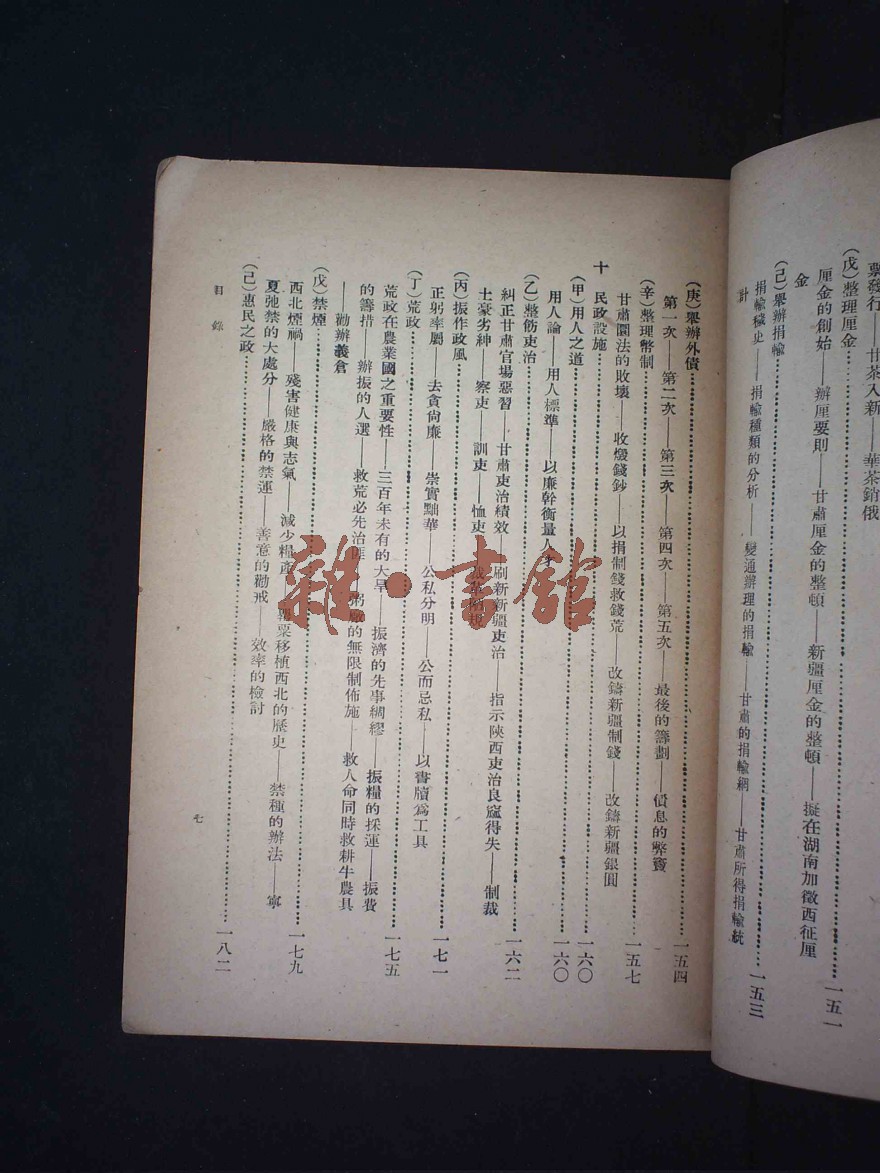 票發行——甘茶入新——華茶銷俄
(戊)整理厘金……一五一
厘金的創始——辦厘要則——甘肅厘金的整頓——新疆厘金的整頓——擬在湖南加徵西征厘
金
(己)舉辦捐輸……一五三
捐輸穢史——捐輸種類的分析——變通辦理的捐輸——甘肅的捐輸網——甘肅所得捐輸統
計
(庚)舉辦外債……一五四
第一次——第二次——第三次——第四次——第五次——最後的籌劃——債息的弊竇
(辛)整理幣制……一五七
甘肅圜法的敗壞——收燬錢鈔——以捐制錢救錢荒——改鑄新疆制錢——改鑄新疆銀圓
十 民政設施……一六〇
(甲)用人之道……一六〇
用人論——用人標準——以廉幹衡量人才
(乙)整飭吏治……一六二
糾正甘肅官場惡習——甘肅吏治績效——刷新新疆吏治——指示陝西吏治良窳得失——制裁
土豪劣紳——察吏——訓吏——恤吏——裁革陋規
(丙)振作政風……一七一
正躬率屬——去貪尙廉——崇實黜華——公私分明——公而忘私——以書牘爲工具
(丁)荒政……一七五
荒政在農業國之重要性——三百年未有的大旱——振濟的先事綢繆——振糧的採運——振費
的籌措——辦振的人選——救荒必先治匪——粥廠的無限制佈施——救人命同時救耕牛農具
——勸辦義倉
(戊)禁煙……一七九
西北煙禍——殘害健康與志氣——減少糧產——罌粟移植西北的歷史——禁種的辦法——寧
夏弛禁的大處分——嚴格的禁運——善意的勸戒——效率的檢討
(己)惠民之政……一八二
目錄
七
雜·書館